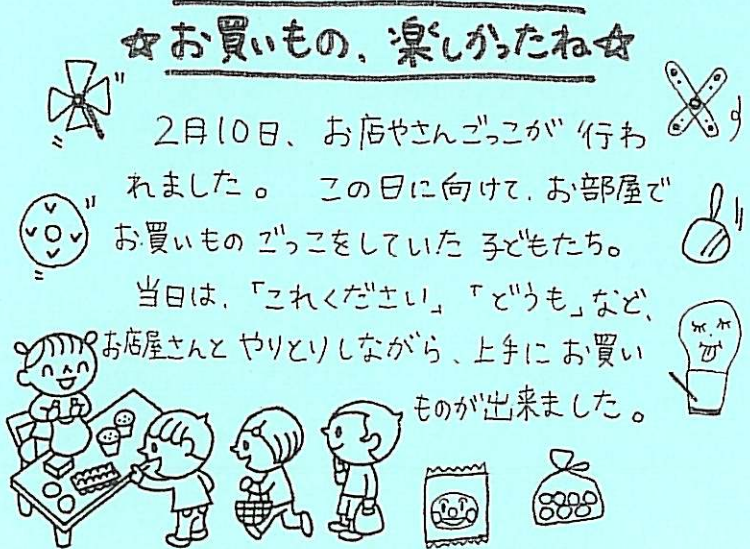 ☆お買いもの、楽しかったね☆
2月10日、お店やさんごっこが行わ
れました。この日に向けて、お部屋で
お買いものごっこをしていた子どもたち。
当日は、「これください」「どうも」など、
お店屋さんとやりとりしながら、上手にお買い
ものが出来ました。